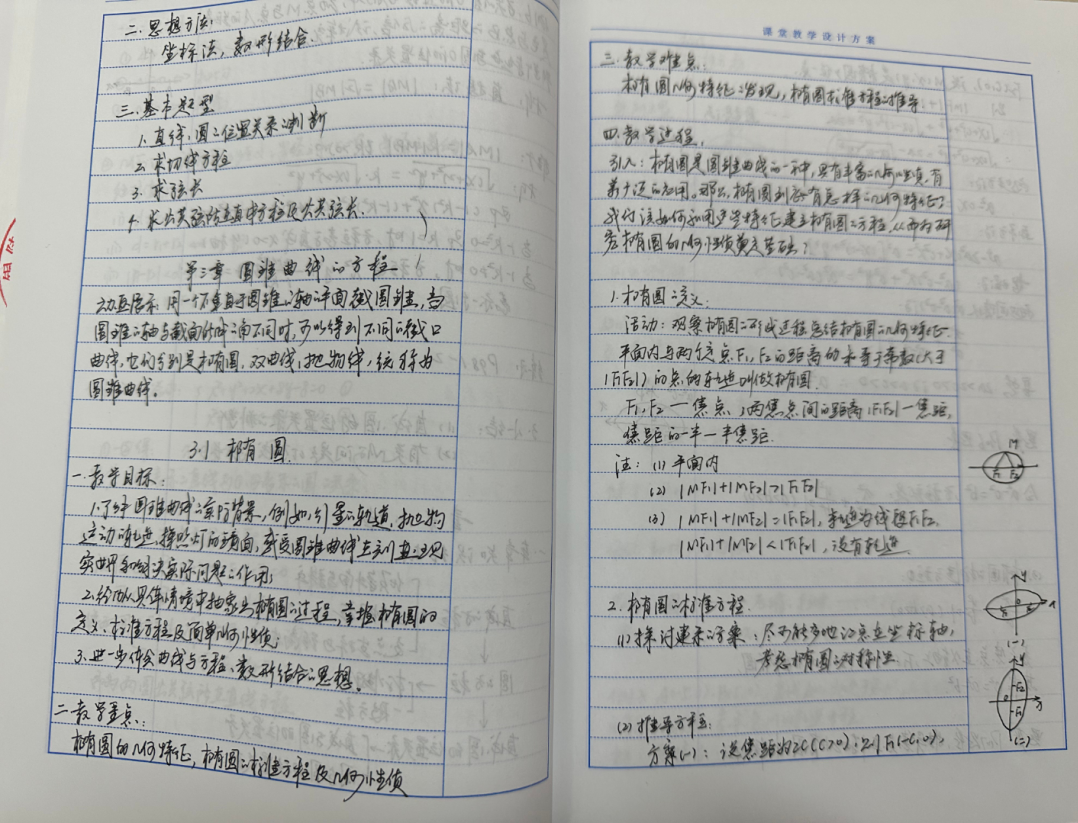 二.思想方法:
坐标法,数形结合.
三.基本题型
1.直线、圆之位置关系之判断
2.求切线方程
3.求弦长
4.求公共弦所在直线方程及公共弦长.
第三章 圆锥曲线的方程
动画展示 用一个不垂直于圆锥之轴之平面截圆锥,当
圆锥之轴与截面所成之角不同时,可以得到不同之截口
曲线,它们分别是椭圆,双曲线,抛物线,统称为
圆锥曲线。
3.1 椭圆
一.教学目标:
1.了解圆锥曲线之实际背景,例如,行星之轨道,抛物
运动之轨迹,探照灯的镜面,感受圆锥曲线在刻画现
实世界和解决实际问题之作用;
2.经历从具体情境中抽象出椭圆之过程,掌握椭圆的
定义、标准方程及简单几何性质;
3.进一步体会曲线与方程、数形结合之思想。
二.教学重点:
椭圆的几何特征,椭圆之标准方程及几何性质
课堂教学设计方案
三.教学难点:
椭圆几何特征之发现,椭圆标准方程之推导
四.教学过程.
引入:椭圆是圆锥曲线的一种,具有丰富之几何性质,有
着广泛的应用。那么,椭圆到底有怎样之几何特征?
我们该如何利用这些特征建立椭圆之方程,从而为研
究椭圆的几何性质奠定基础?
1.椭圆之定义.
活动:观察椭圆之形成过程总结椭圆之几何特征
平面内与两个定点F₁,F₂的距离的和等于常数(大于
|F₁F₂|)的点的轨迹叫做椭圆.
F₁,F₂—焦点,两焦点间的距离|F₁F₂|—焦距,
焦距的一半—半焦距.
注:(1)平面内
(2)|MF₁|+|MF₂|>|F₁F₂|
(3)|MF₁|+|MF₂|=|F₁F₂|,轨迹为线段F₁F₂.
|MF₁|+|MF₂|<|F₁F₂|,没有轨迹
M
F₁ F₂
2.椭圆之标准方程.
(1)探讨建系之方案:尽可能多地让点在坐标轴,
考虑椭圆之对称性
y
x
F₁ F₂
(一)
y
F₂
F₁
(二)
(2)推导方程:
方案(一):设焦距为2c(c>0),则F₁(-c,0),